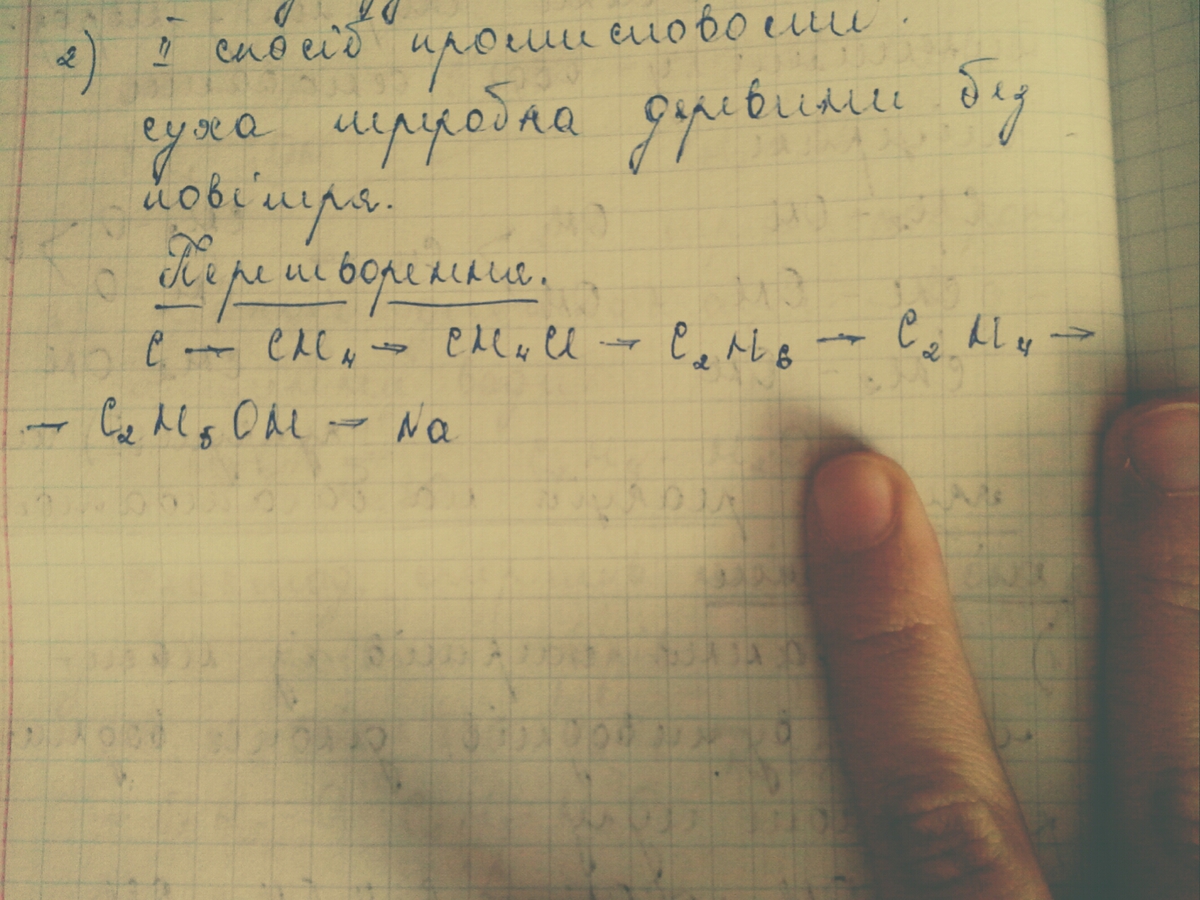 2) II спосіб промисловості.
суха переробка деревини без
повітря.
Перетворення.
C → CH₄ → CH₄Cl → C₂H₆ → C₂H₄ →
→ C₂H₅OH → Na